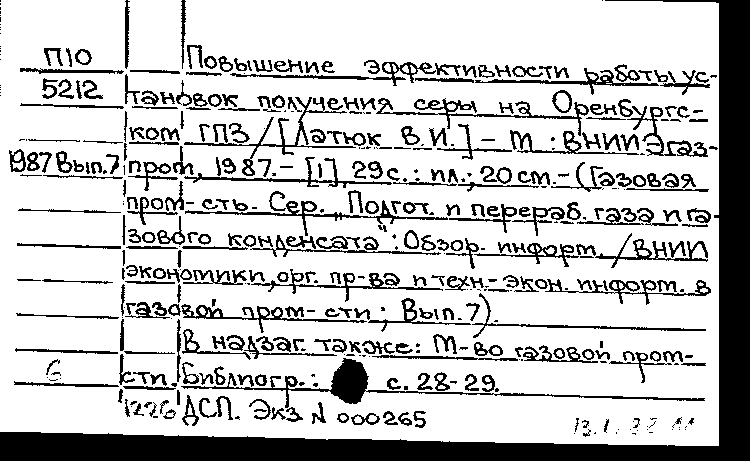 П10 Повышение эффективности работы ус-
5212 тановок получения серы на Оренбургс-
ком ГПЗ / [Латюк В.И.] - М : ВНИИЭгаз-
1987 Вып.7 пром, 1987.- [1], 29 с. : ил.; 20 см.- (Газовая
пром-сть. Сер. „Подгот. и перераб. газа и га-
зового конденсата": Обзор. информ. / ВНИИ
экономики, орг. пр-ва и техн.-экон. информ. в
газовой пром-сти ; Вып.7).
В надзаг. также: М-во газовой пром-
6 сти. Библиогр.: с. 28-29.
1226 ДСП. Экз N 000265
13.1.88